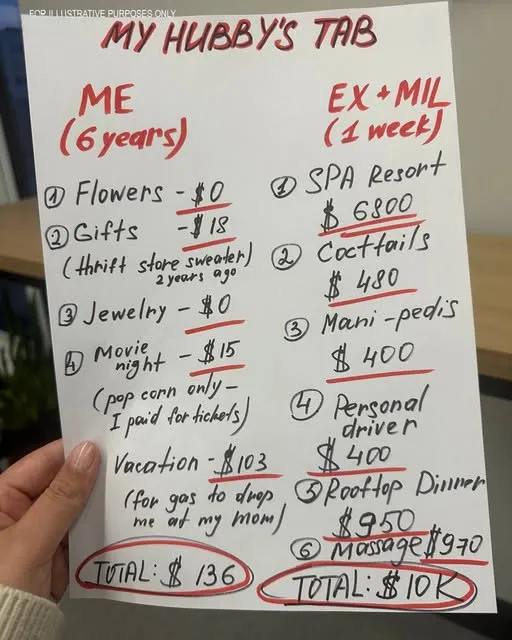 FOR ILLUSTRATIVE PURPOSES ONLY
MY HUBBY'S TAB
ME
(6 years)
① Flowers - $0
② Gifts - $18
(thrift store sweater)
2 years ago
③ Jewelry - $0
④ Movie
night - $15
(pop corn only –
I paid for tickets)
Vacation - $103
(for gas to drop
me at my mom)
TOTAL: $ 136
EX + MIL
(1 week)
① SPA Resort
$ 6800
② Cocttails
$ 480
③ Mani-pedis
$ 400
④ Personal
driver
$ 400
⑤ Rooftop Dinner
$950
⑥ Massage $970
TOTAL: $10K